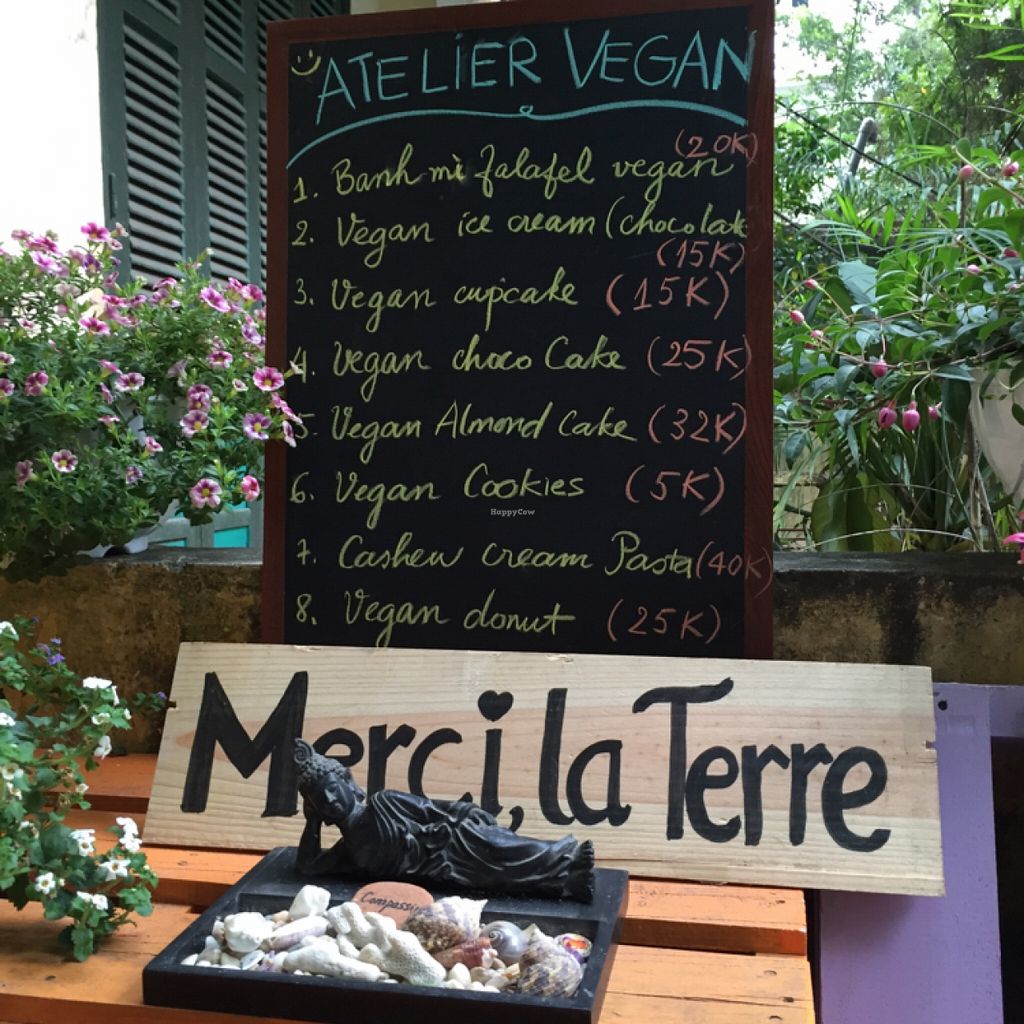 ATELIER VEGAN
1. Banh mì falafel vegan (20K)
2. Vegan ice cream (chocolate
(15K)
3. Vegan cupcake (15K)
4. Vegan choco Cake (25K)
5. Vegan Almond Cake (32K)
6. Vegan Cookies (5K)
HappyCow
7. Cashew cream Pasta (40K)
8. Vegan donut (25K)
Merci, la Terre